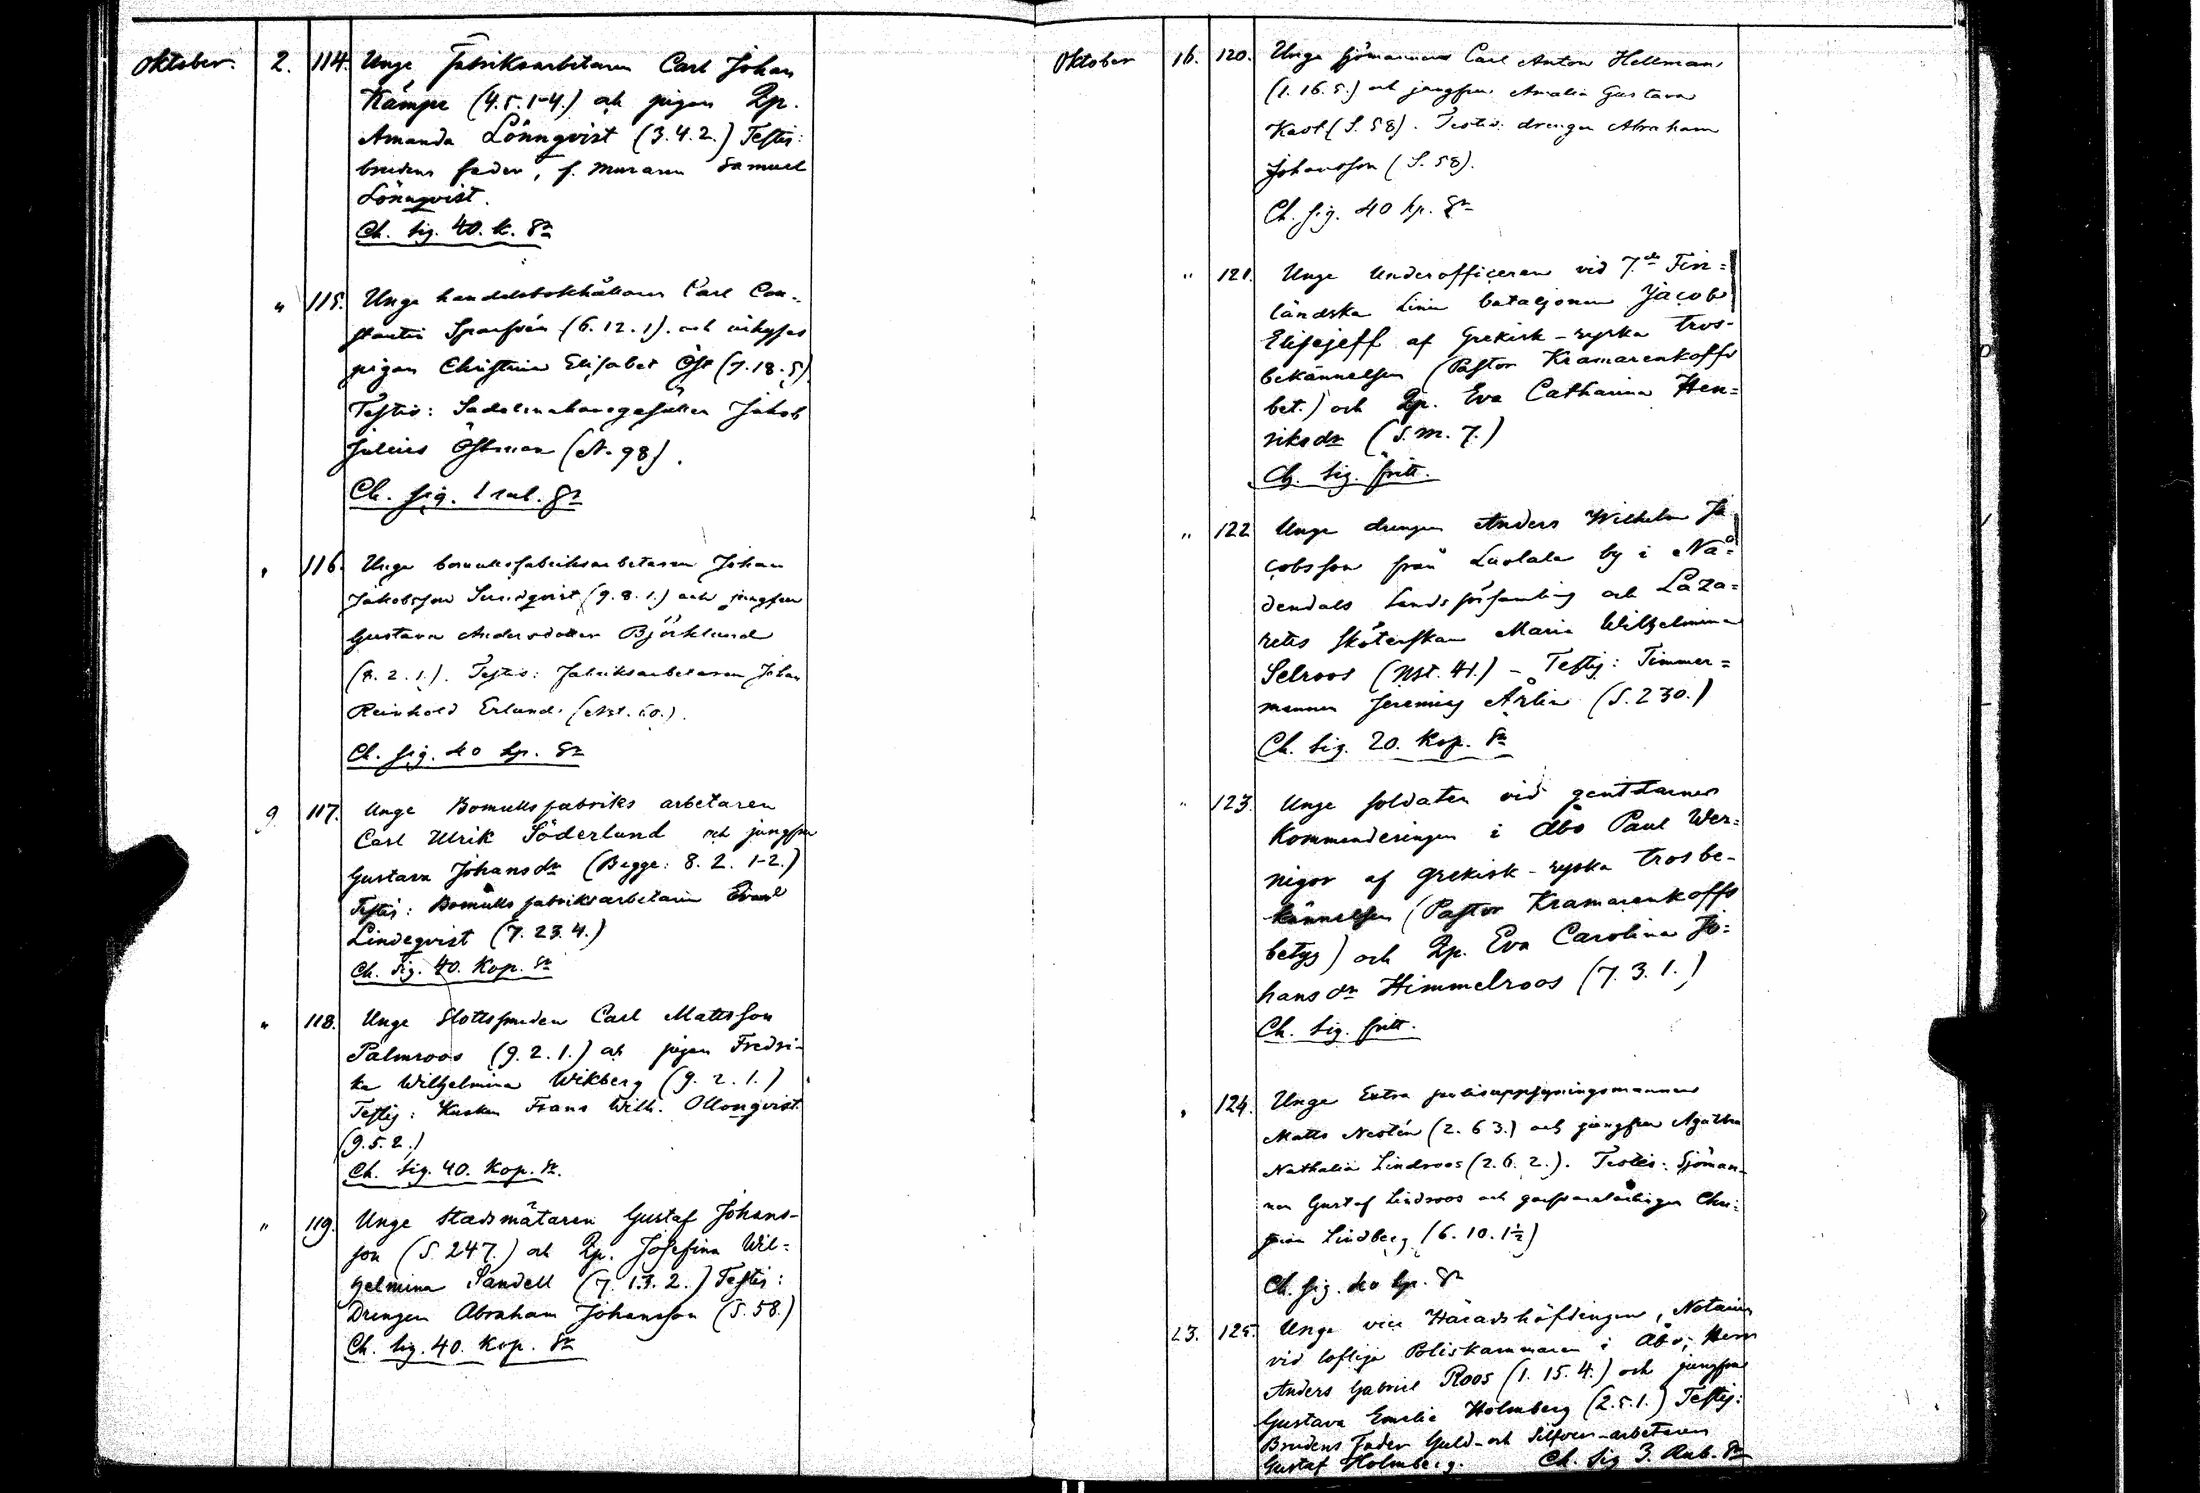 Oktober. 2. 114. Unge Fabriksarbetaren Carl Johan
Kämpe (4.5.1-4.) och pigan Qp.
Amanda Lönnqvist (3.4.2.) Testis:
brudens fader, f. muraren Samuel
Lönnqvist.
Ch. sig. 40. k. Sr
" 115. Unge handelsbokhållaren Carl Con-
stantin Sparfvén (6.12.1). och inhyses
pigan Christina Elisabet Öst (7.18.5)
Testis: Sadelmakaregesällen Jakob
Julius Östman (N. 98).
Ch. sig. 1 rub. Sr
" 116. Unge bomullsfabriksarbetaren Johan
Jakobsson Sundqvist (9.8.1.) och jungfrun
Gustava Andersdotter Björklund
(8.2.1.). Testis: Fabriksarbetaren Johan
Reinhold Erlund. (Nst. 60.).
Ch. sig. 40 kp. Sr
9 117. Unge Bomullsfabriks arbetaren
Carl Ulrik Söderlund och jungfrun
Gustava Johansdr (Begge: 8.2.1-2.)
Testis: Bomullsfabriksarbetaren
Lindeqvist (7.23.4.)
Ch. sig. 40. Kop. Sr
" 118. Unge Carl Mattsson
Palmroos (9.2.1.) och pigan Fredri-
ka Wilhelmina Wikberg (9.2.1.)
Testis: Kusken Frans Wilh. Ollonqvist.
(9.5.2.)
Ch. sig. 40. Kop. Sr.
" 119. Unge Stadsmätaren Gustaf Johans-
son (S. 247.) och Qp. Josefina Wil=
helmina Sandell (7.13.2.) Testis:
Drengen Abraham Johansson (S.58.)
Ch. sig. 40. Kop. Sr
Oktober 16. 120. Unge sjömannen Carl Anton Hellman
(1.16.5.) och jungfrun Amalia Gustava
(S. 58). Testis: drengen Abraham
Johansson (S. 58).
Ch. sig. 40 kp. Sr
" 121. Unge Underofficeren vid 7.de Fin=
ländska Linie bataljonen Jacob
Elisejeff af Grekisk-ryska tros-
bekännelsen (Pastor Kramarenkoffs
bet.) och Qp. Eva Catharina Hen=
riksdr (S.M. 7.)
Ch. sig. fritt.
" 122 Unge drengen Anders Wilhelm Ja
cobsson från Luolala by i Nå=
dendals Landsförsamling och Laza=
retts Sköterskan Maria Wilhelmina
Selroos (Nst. 41.) - Testis: Timmer=
mannen Jeremias Arlin (S. 230.)
Ch. sig. 20. Kop. Sr
" 123. Unge soldaten vid gentdarmes
Kommenderingen i Åbo Paul Wer=
nigor af grekisk-ryska trosbe-
kännelsen (Pastor Kramarenkoffs
betyg) och Qp. Eva Carolina Jo=
hansdr Himmelroos (7.3.1.)
Ch. sig. fritt.
" 124. Unge Extra polisuppsyningsmannen
Matts Nestén (2.6 3.) och jungfrun Agatha
Nathalia Lindroos (2.6.2.). Testes: Sjöman-
nen Gustaf Lindroos och Chri=
Lindberg (6.10.1½)
Ch. sig. 40 kp. Sr
23. 125. Unge vice Häradshöfdingen, Notarien
vid loflige Poliskammaren i Åbo, Herr
Anders Gabriel Roos (1.15.4.) och jungfrun
Gustava Emelie Holmberg (2.5.1.) Testis:
Brudens fader Guld- och Silfver-arbetaren
Gustaf Holmberg. Ch. sig 3. Rub. Sr